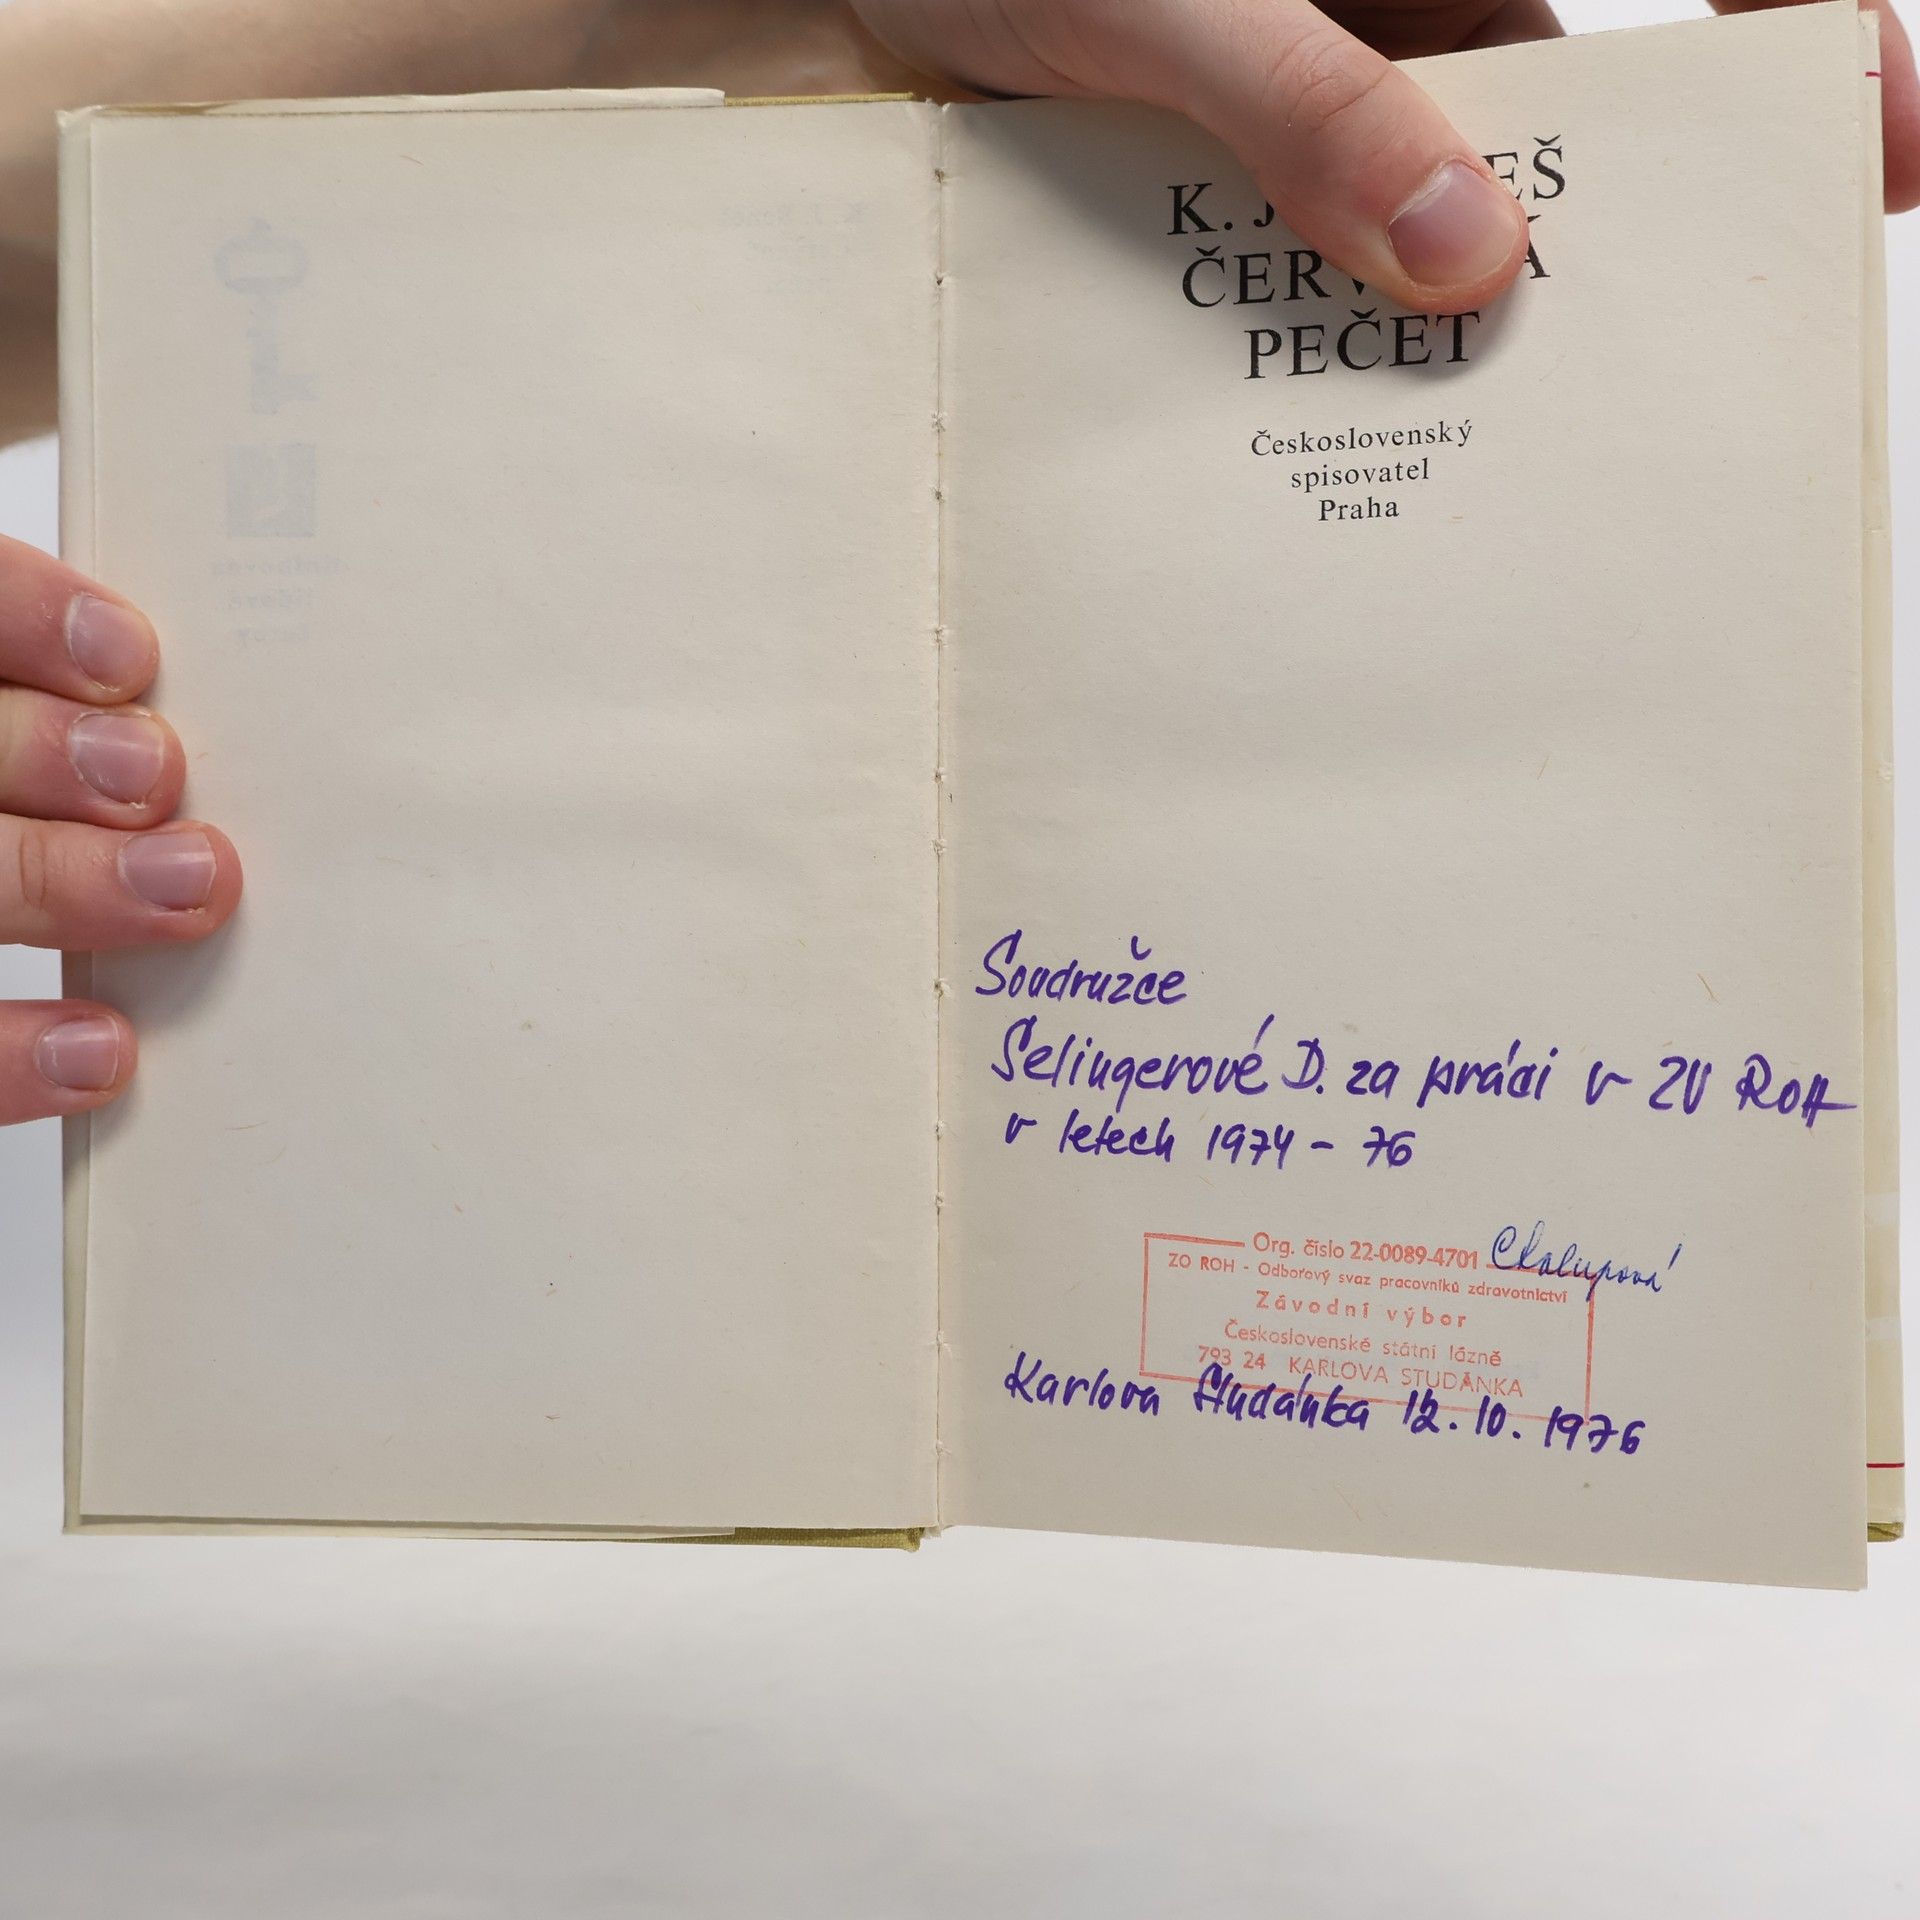 K. J
EŠ
ČERV
Á
PEČET
Československý
spisovatel
Praha
Soudružce
Selingerové D. za práci v ZV ROH
v letech 1974 - 76
Org. číslo 22-0089-4701 Chalupová
ZO ROH - Odborový svaz pracovníků zdravotnictví
Závodní výbor
Československé státní lázně
793 24 KARLOVA STUDÁNKA
Karlova Studánka 12. 10. 1976